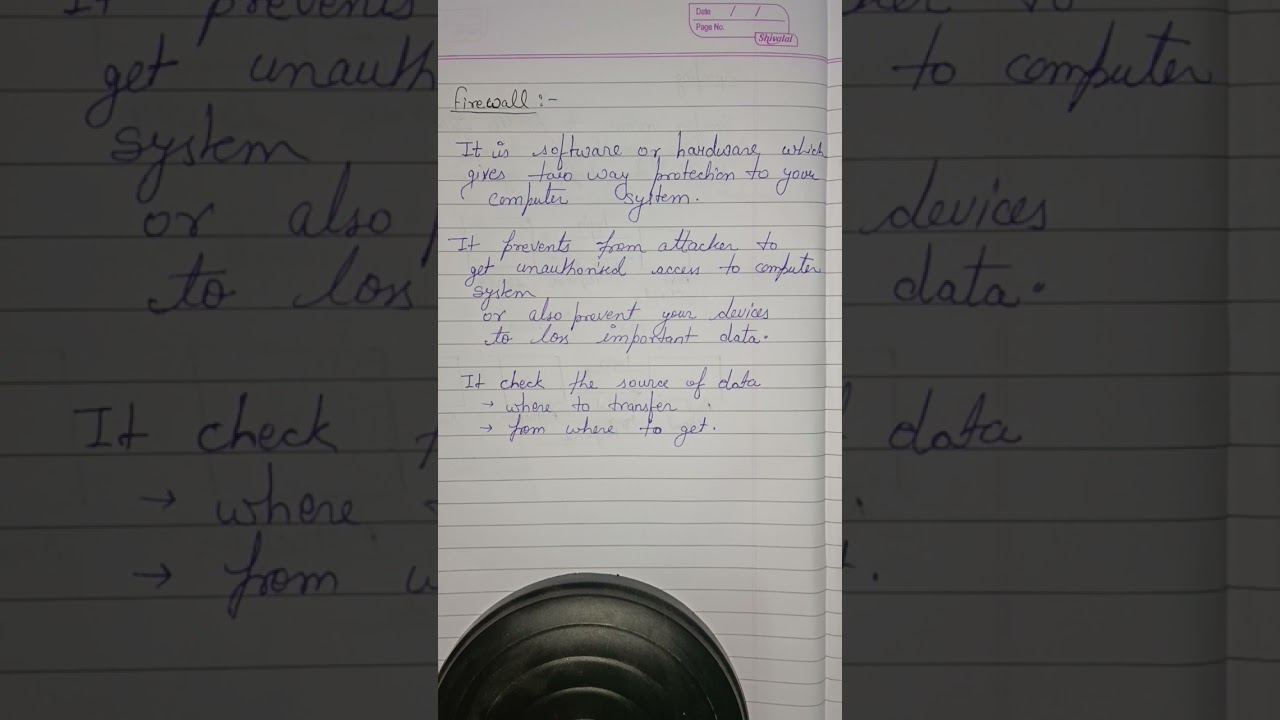 Date / /
Page No.
Shivalal
firewall :-
It is software or hardware which
gives two way protection to your
computer system.
It prevents from attacker to
get unauthorised access to computer
system
or also prevent your devices
to loss important data.
It check the source of data
→ where to transfer
→ from where to get.